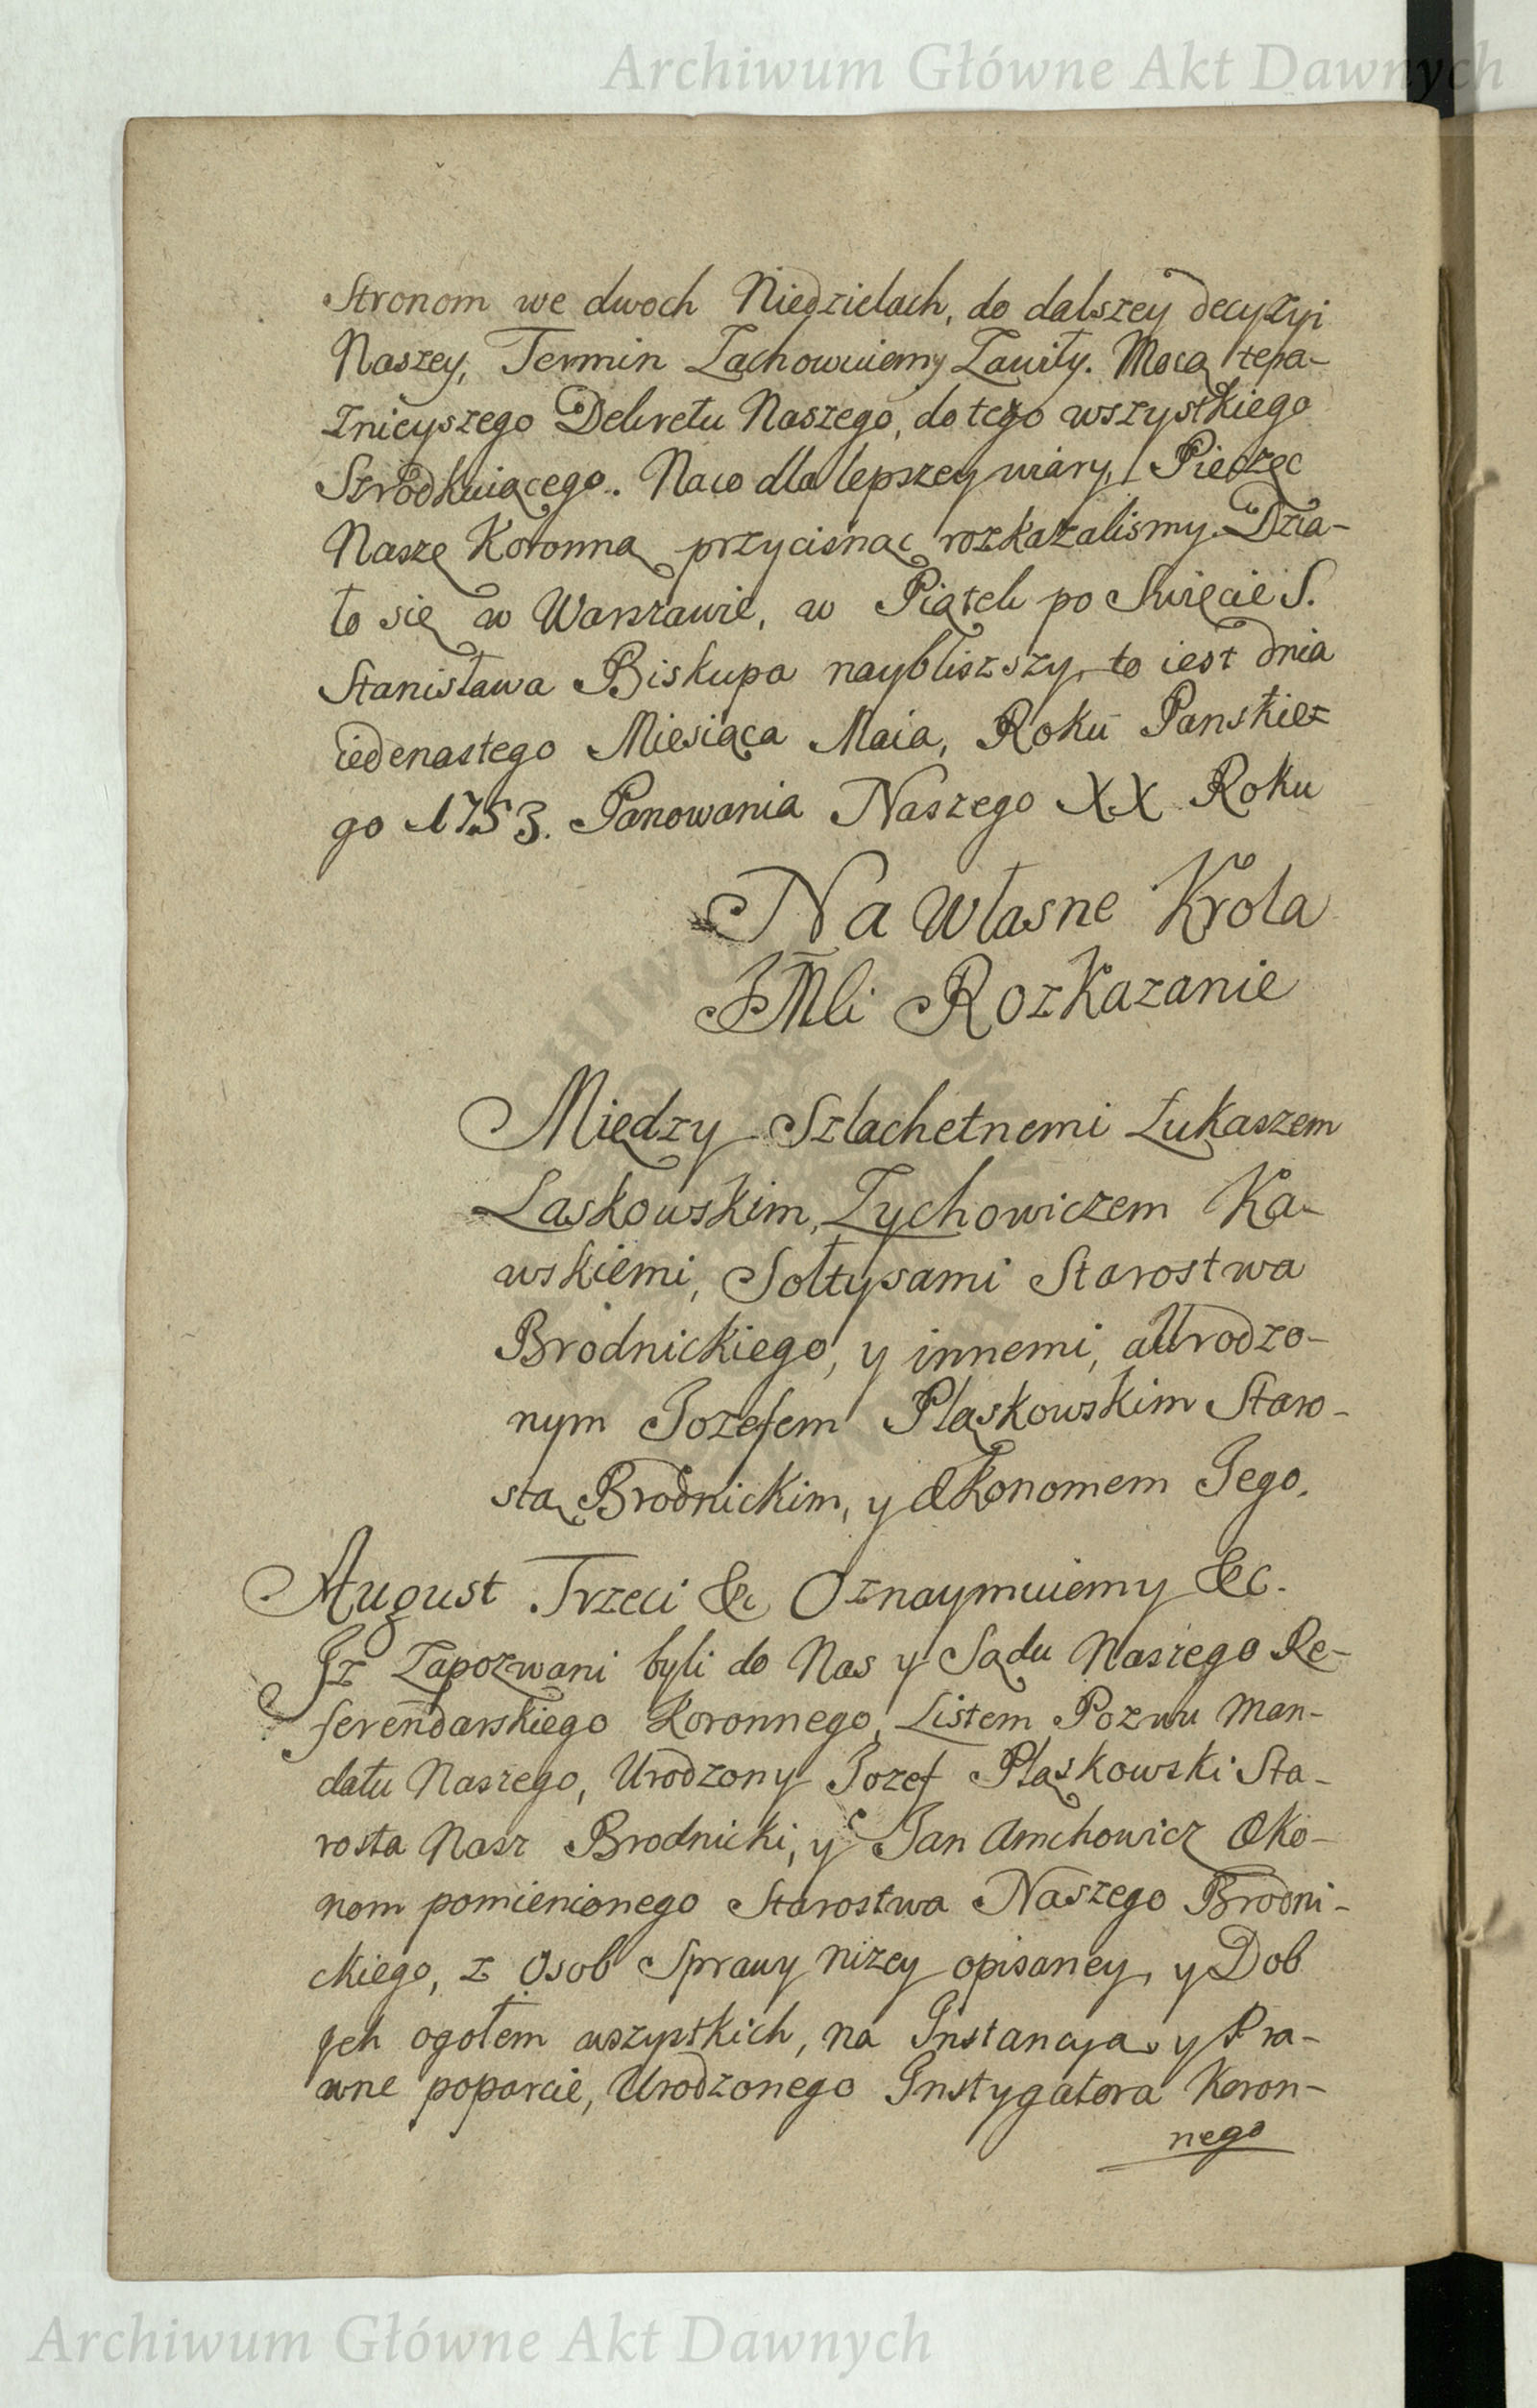 Archiwum Główne Akt Dawnych
Stronom we dwoch Niedzielach, do dalszey decyzyi
Naszey, Termin Zachowuiemy Zawity. Mocą tera-
znieyszego Dekretu Naszego, do tego wszystkiego
Szrodkuiącego. Naco dla lepszey wiary, Pieczęc
Naszę Koronną przycisnąc rozkazalismy. Dzia-
ło się w Warszawie, w Piątek po Swięcie S.
Stanisława Biskupa naybliszszy, to iest dnia
iedenastego Miesiąca Maia, Roku Panskie=
go 1753. Panowania Naszego XX Roku
Na własne Krola
JMci Rozkazanie
Między Szlachetnemi Łukaszem
Laskowskim, Zychowiczem Ka-
wskiemi, Sołtysami Starostwa
Brodnickiego, y innemi, a Urodzo-
nym Jozefem Pląskowskim Staro-
stą Brodnickim, y Œkonomem Jego.
August Trzeci &c Oznaymuiemy &c.
Jz Zapozwani byli do Nas y Sądu Naszego Re-
ferendarskiego Koronnego, Listem Pozwu Man-
datu Naszego, Urodzony Jozef Pląskowski Sta-
rosta Nasz Brodnicki, y Jan Œko-
nom pomienionego Starostwa Naszego Brodni-
ckiego, z Osob Sprawy nizey opisaney, y Dob
ych ogołem wszystkich, na Jnstancyą y Pra-
wne poparcie, Urodzonego Jnstygatora Koron-
nego
Archiwum Główne Akt Dawnych